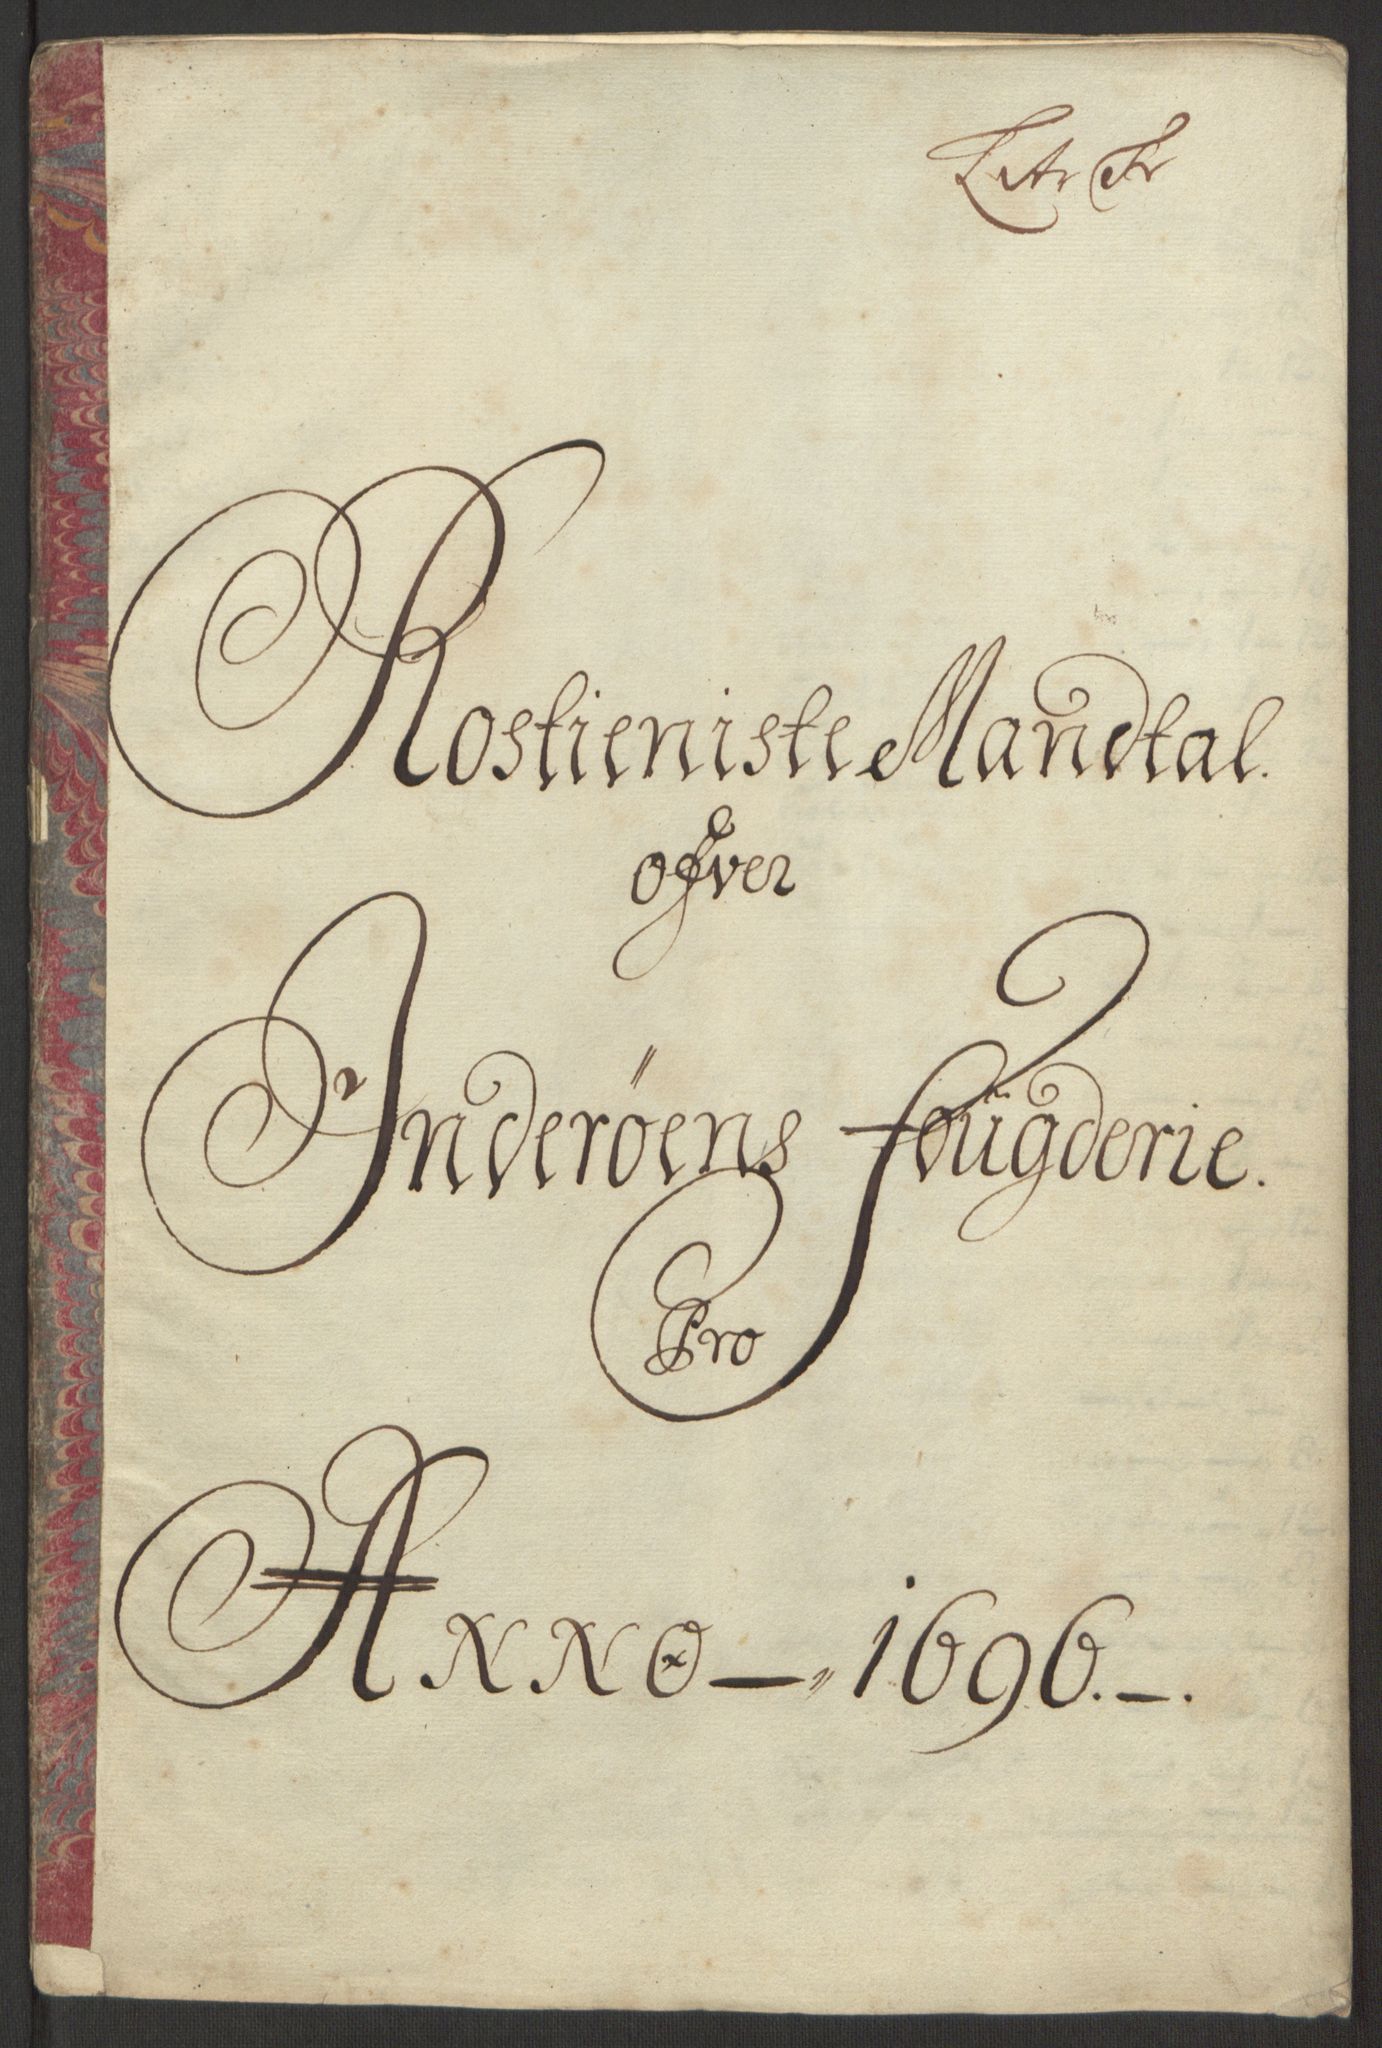 Rostieniste Mandtal.
ofver
Inderøens fougderie.
Pro
Anno — 1696. —.